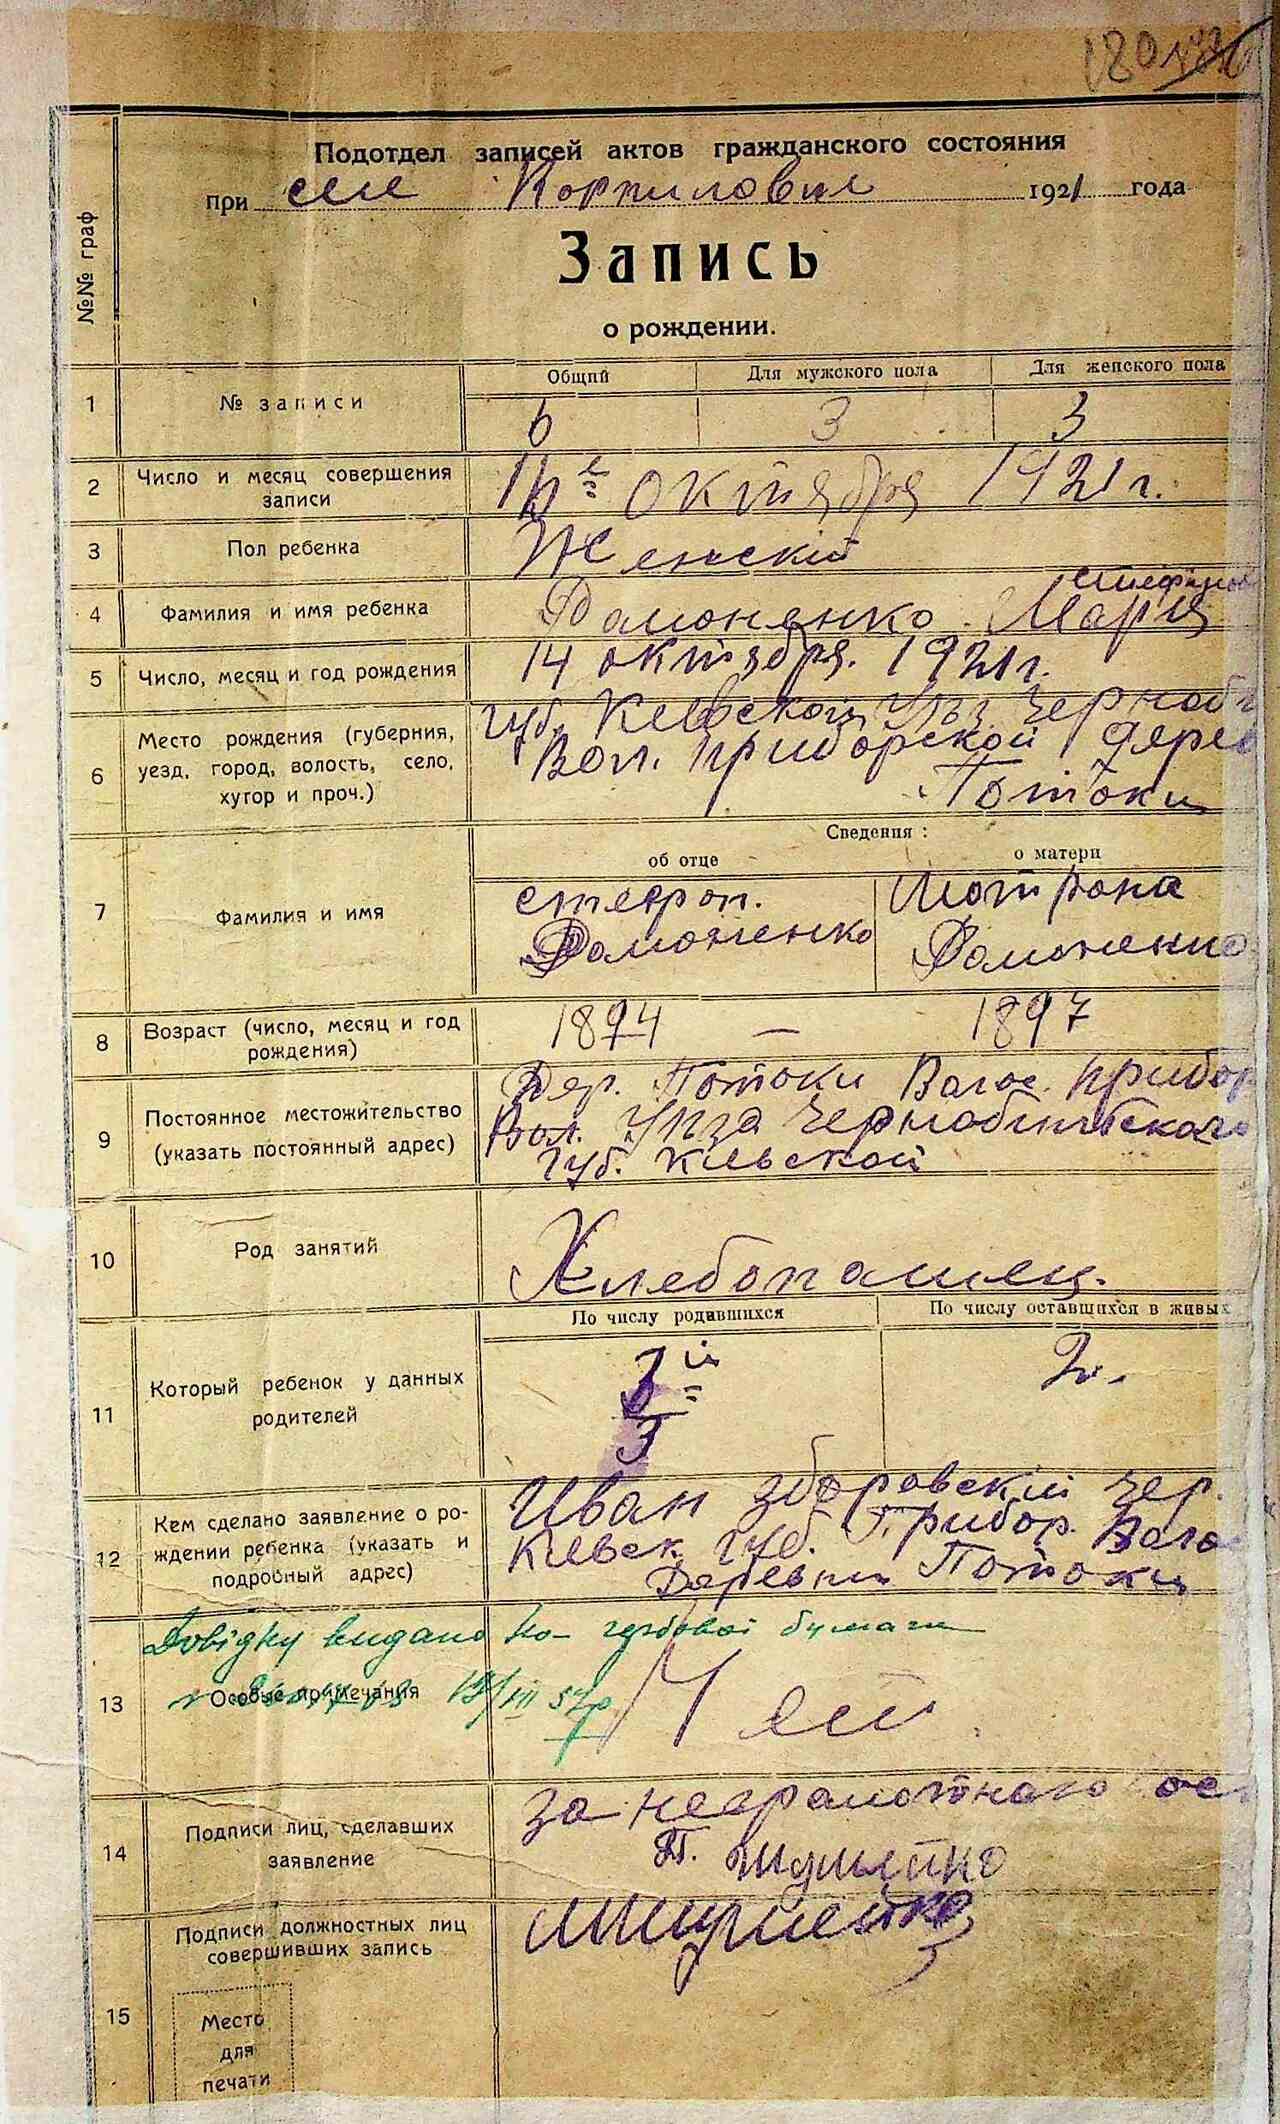 180
Подотдел записей актов гражданского состояния
при селе Корпиловке 1921 года
№№ граф
Запись
о рождении.
Общий Для мужского пола Для женского пола
1 № записи 6 3 3
2 Число и месяц совершения
записи
16 е октября 1921 г.
3 Пол ребенка Женскій
4 Фамилия и имя ребенка Домоненко Мария
5 Число, месяц и год рождения 14 октября. 1921 г.
6 Место рождения (губерния,
уезд, город, волость, село,
хутор и проч.)
губ. Киевской Уез. Чернобы
Вол. Приборской дерев
Потоки
Сведения:
об отце о матери
7 Фамилия и имя
Стефан. Мотрона
Домоненко Домоненко
8 Возраст (число, месяц и год
рождения)
1894 — 1897
9 Постоянное местожительство
(указать постоянный адрес)
Дер. Потоки Волос. Прибор
Вол. Уиза Чернобильского
Губ. Киевской
10 Род занятий Хлебопашец.
По числу родившихся По числу оставшихся в живых
11 Который ребенок у данных
родителей
3 й 2.
3
12 Кем сделано заявление о ро-
ждении ребенка (указать и
подробный адрес)
Иван Зборовский Чер.
Киевск губ. Прибор. Воло
Деревни Потоки
Довідку видано на гербовой бумаги
13 Особые примечания
14 Подписи лиц, сделавших
заявление
за неграмотного
П. Шумейко
15 Подписи должностных лиц
совершивших запись
Место
для
печати